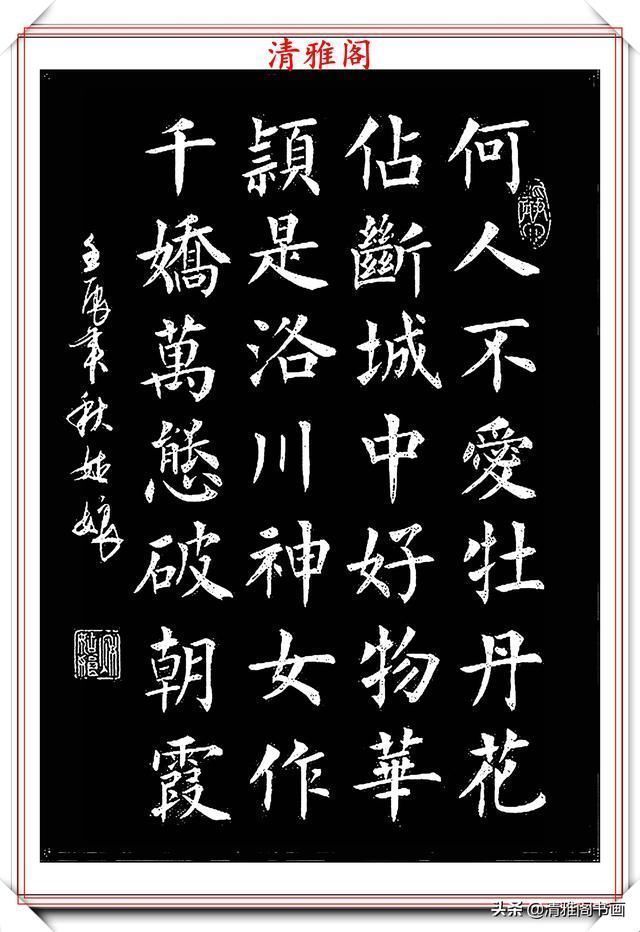 清雅阁
何人不愛牡丹花
佔斷城中好物華
穎是洛川神女作
千嬌萬態破朝霞
秋姑娘
头条 @清雅阁书画